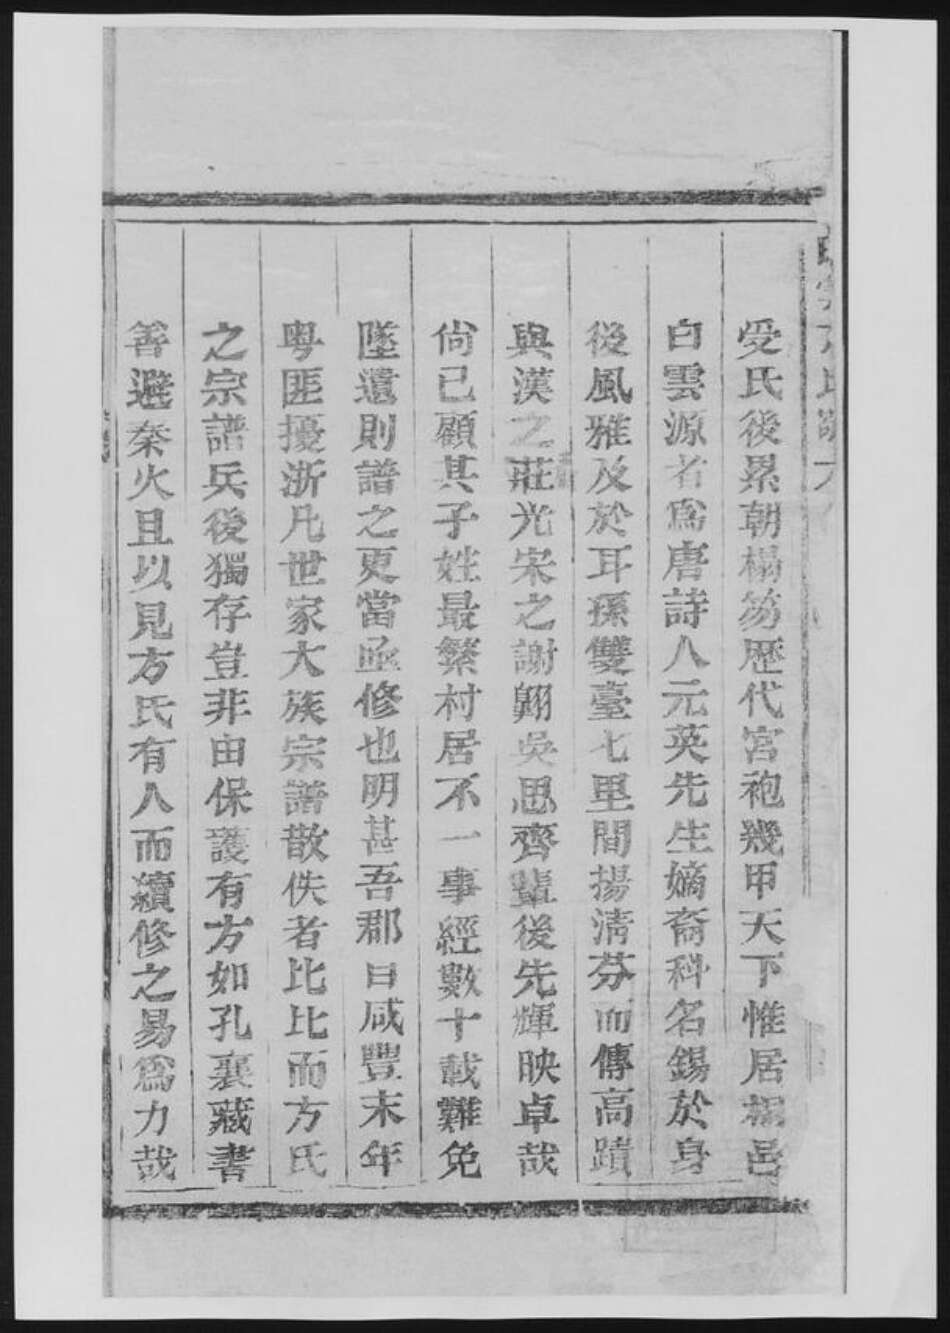 受氏後累朝榻笏歷代宮袍幾甲天下惟居桐邑
白雲源者爲唐詩人元英先生嫡裔科名錫於身
後風雅及於耳孫雙臺七里間揚清芬而傳高蹟
與漢之莊光宋之謝翺吳思齊輩後先輝映卓哉
尚已顧其子姓最繁村居不一事經數十載難免
墜遺則譜之更當亟修也明甚吾郡自咸豐末年
粵匪擾浙凡世家大族宗譜散佚者比比而方氏
之宗譜兵後獨存豈非由保護有方如孔襄藏書
善避秦火且以見方氏有人而續修之易爲力哉